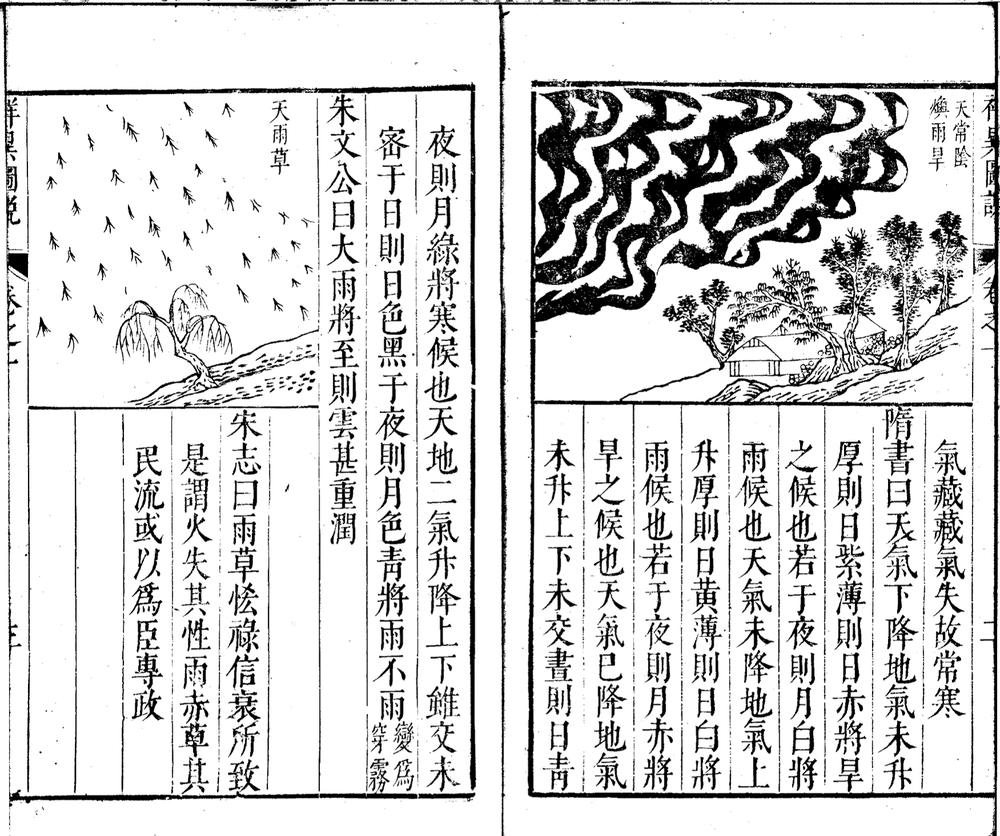 天常陰
燠雨旱
氣藏藏氣失故常寒
隋書曰天氣下降地氣未升
厚則日紫薄則日赤將旱
之候也若于夜則月白將
雨候也天氣未降地氣上
升厚則日黃薄則日白將
雨候也若于夜則月赤將
旱之候也天氣已降地氣
未升上下未交晝則日青
夜則月綠將寒候也天地二氣升降上下雖交未
密于日則日色黑于夜則月色青將雨不雨變爲穿霧
朱文公曰大雨將至則雲甚重潤
天雨草
宋志曰雨草恡祿信衰所致
是謂火失其性雨赤草其
民流或以爲臣專政
祥異圖說